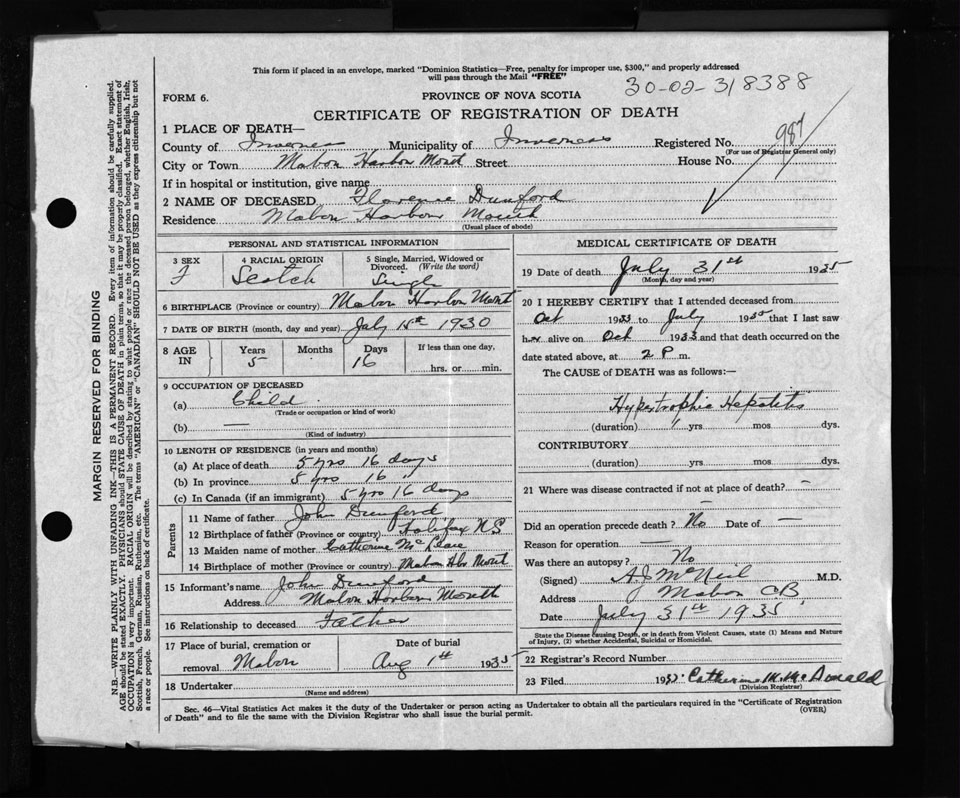 This form if placed in an envelope, marked "Dominion Statistics—Free, penalty for improper use, $300," and properly addressed
will pass through the Mail "FREE"
30-02-318388
FORM 6.
PROVINCE OF NOVA SCOTIA
CERTIFICATE OF REGISTRATION OF DEATH
987
1 PLACE OF DEATH—
County of Inverness Municipality of Inverness Registered No.
(For use of Registrar General only)
City or Town Mabou Harbor Mouth Street House No.
If in hospital or institution, give name
2 NAME OF DECEASED Florence Dunford
Residence Mabou Harbour Mouth
(Usual place of abode)
PERSONAL AND STATISTICAL INFORMATION
3 SEX 4 RACIAL ORIGIN 5 Single, Married, Widowed or
Divorced. (Write the word)
F Scotch Single
6 BIRTHPLACE (Province or country) Mabou Harbor Mouth
7 DATE OF BIRTH (month, day and year) July 15th 1930
8 AGE IN Years Months Days If less than one day,
5 16 hrs. or min.
9 OCCUPATION OF DECEASED
(a) Child
(Trade or occupation or kind of work)
(b) —
(Kind of industry)
10 LENGTH OF RESIDENCE (in years and months)
(a) At place of death 5 yrs 16 days
(b) In province 5 yrs 16 "
(c) In Canada (if an immigrant) 5 yrs 16 days
Parents
11 Name of father John Dunford
12 Birthplace of father (Province or country) Halifax N S
13 Maiden name of mother Catherine
14 Birthplace of mother (Province or country) Mabou Hbr Mout
15 Informant's name John Dunford
Address Mabou Harbour Mouth
16 Relationship to deceased Father
17 Place of burial, cremation or Date of burial
removal Mabou Aug 1st 1935
18 Undertaker
(Name and address)
MEDICAL CERTIFICATE OF DEATH
19 Date of death July 31st 1935
(Month, day and year)
20 I HEREBY CERTIFY that I attended deceased from
Oct 1933 to July 1935 that I last saw
her alive on Oct 1933 and that death occurred on the
date stated above, at 2 P m.
The CAUSE of DEATH was as follows:—
Hypertrophic Hepatitis
(duration) yrs mos dys.
CONTRIBUTORY
(duration) yrs mos dys.
21 Where was disease contracted if not at place of death? —
Did an operation precede death? No Date of —
Reason for operation —
Was there an autopsy? No
(Signed) A J McNeil M.D.
Address Mabou CB
Date July 31st 1935
State the Disease causing Death, or in death from Violent Causes, state (1) Means and Nature
of Injury, (2) whether Accidental, Suicidal or Homicidal.
22 Registrar's Record Number
23 Filed 193 Catherine M. McDonald
(Division Registrar)
Sec. 46—Vital Statistics Act makes it the duty of the Undertaker or person acting as Undertaker to obtain all the particulars required in the "Certificate of Registration
of Death" and to file the same with the Division Registrar who shall issue the burial permit.
(OVER)
MARGIN RESERVED FOR BINDING
N.B.—WRITE PLAINLY WITH UNFADING INK—THIS IS A PERMANENT RECORD. Every item of information should be carefully supplied.
AGE should be stated EXACTLY. PHYSICIANS should STATE CAUSE OF DEATH in plain terms, so that it may be properly classified. Exact statement of
OCCUPATION is very important. RACIAL ORIGIN will be described by stating to what people or race the deceased person belonged, whether English, Irish,
Scottish, French, German, Russian, Ruthenian, etc. The terms "AMERICAN" or "CANADIAN" SHOULD NOT BE USED as they express citizenship but not
a race or people. See instructions on back of certificate.